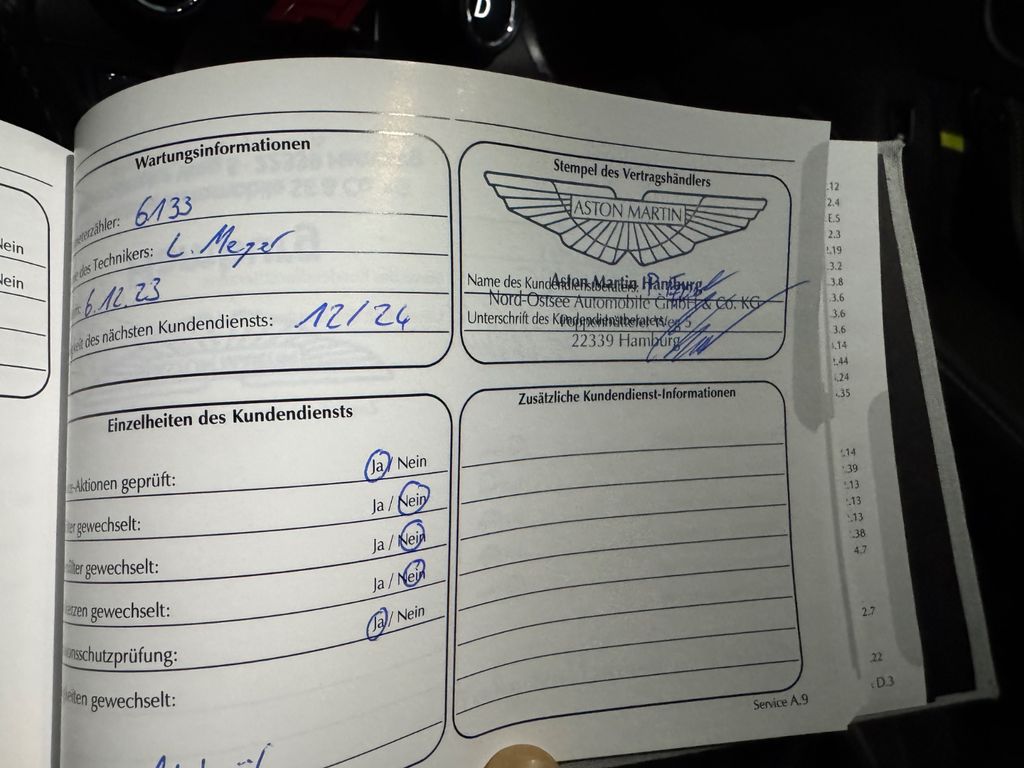 D
Nein
Nein
Wartungsinformationen
6133
des Technikers: L. Meyer
6.12.23
des nächsten Kundendiensts: 12/24
Stempel des Vertragshändlers
ASTON MARTIN
Name des Kundendienstberaters:
Aston Martin Hamburg
Nord-Ostsee Automobile GmbH & Co. KG
Unterschrift des Kundendienstberaters:
Poppenbütteler Weg 5
22339 Hamburg
Einzelheiten des Kundendiensts
-Aktionen geprüft: Ja / Nein
gewechselt: Ja / Nein
gewechselt: Ja / Nein
gewechselt: Ja / Nein
onsschutzprüfung: Ja / Nein
gewechselt:
Zusätzliche Kundendienst-Informationen
Service A.9
.12
2.4
E.5
2.3
.19
.3.2
3.8
3.6
3.6
3.6
.14
.44
.24
.35
.14
.39
.13
.13
.13
.38
4.7
2.7
.22
D.3